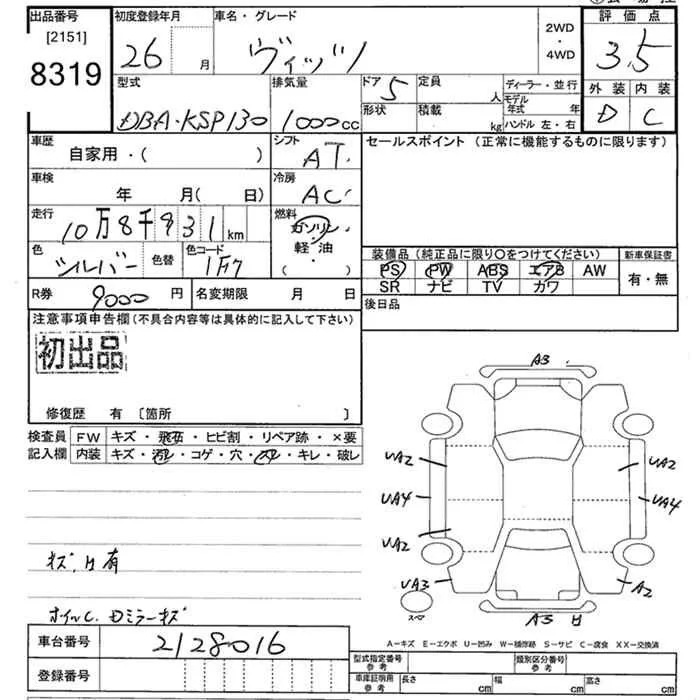 出品番号 初度登録年月 車名・グレード 2WD・4WD 評価点
[2151]
8319 26 月 ヴィッツ 3.5
型式 排気量 ドア 5 定員 人 ディーラー・並行 外装 内装
DBA・KSP130 1000cc 形状 積載 kg モデル年式 年 D C
ハンドル 左・右
車歴 シフト セールスポイント (正常に機能するものに限ります)
自家用・( ) AT
車検 冷房
年 月( 日) AC
走行 10万8千931km 燃料
ガソリン
軽・油
( )
色 シルバー 色替 色コード 1F7
装備品 (純正品に限り○をつけてください) 新車保証書
PS PW ABS エアB AW 有・無
SR ナビ TV カワ
R券 9000 円 名変期限 月 日 後日品
注意事項申告欄(不具合内容等は具体的に記入して下さい)
初出品
修復歴 有 〔箇所 〕
検査員 FW キズ・飛石・ヒビ割・リペア跡・×要
記入欄 内装 キズ・汚レ・コゲ・穴・スレ・キレ・破レ
A3
UA2 UA2
UA4 UA4
UA2
UA3 A2
A3 H
キズ、H 有
ホイルC. Dミラーキズ
A=キズ E=エクボ U=凹み W=補修跡 S=サビ C=腐食 XX=交換済
車台番号 2128016
登録番号
型式指定番号 参考 類別区分番号 参考
車庫証明用 参考 長さ cm 幅 cm 高さ cm